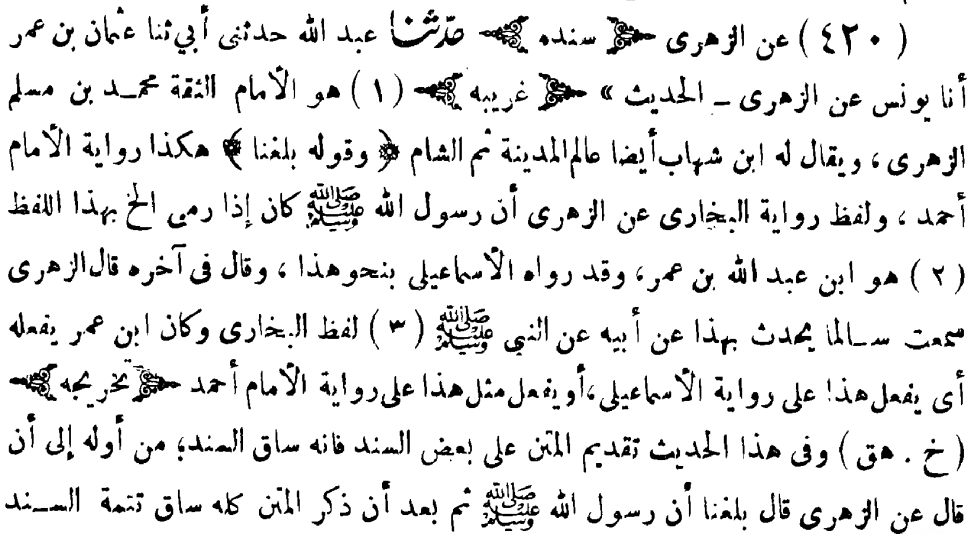 ( ٤٢٠ ) عن الزهرى ﴿ سنده ﴾ حدثنا عبد الله حدثنى أبي ثنا عثمان بن عمر
أنا يونس عن الزهرى ـ الحديث » ﴿ غريبه ﴾ ( ١ ) هو الأمام الثقة محمد بن مسلم
الزهرى ، ويقال له ابن شهاب أيضا عالم المدينة ثم الشام ﴿ وقوله بلغنا ﴾ هكذا رواية الأمام
أحمد ، ولفظ رواية البخارى عن الزهرى أن رسول الله ﷺ كان إذا رمى الخ بهذا اللفظ
( ٢ ) هو ابن عبد الله بن عمر ، وقد رواه الأسماعيلى بنحو هذا ، وقال فى آخره قال الزهرى
سمعت سالما يحدث بهذا عن أبيه عن النبي ﷺ ( ٣ ) لفظ البخارى وكان ابن عمر يفعله
أى يفعل هذا على رواية الأسماعيلى ، أو يفعل مثل هذا على رواية الأمام أحمد ﴿ تخريجه ﴾
( خ . هق ) وفى هذا الحديث تقديم المتن على بعض السند فانه ساق السند من أوله إلى أن
قال عن الزهرى قال بلغنا أن رسول الله ﷺ ثم بعد أن ذكر المتن كله ساق تتمة السند